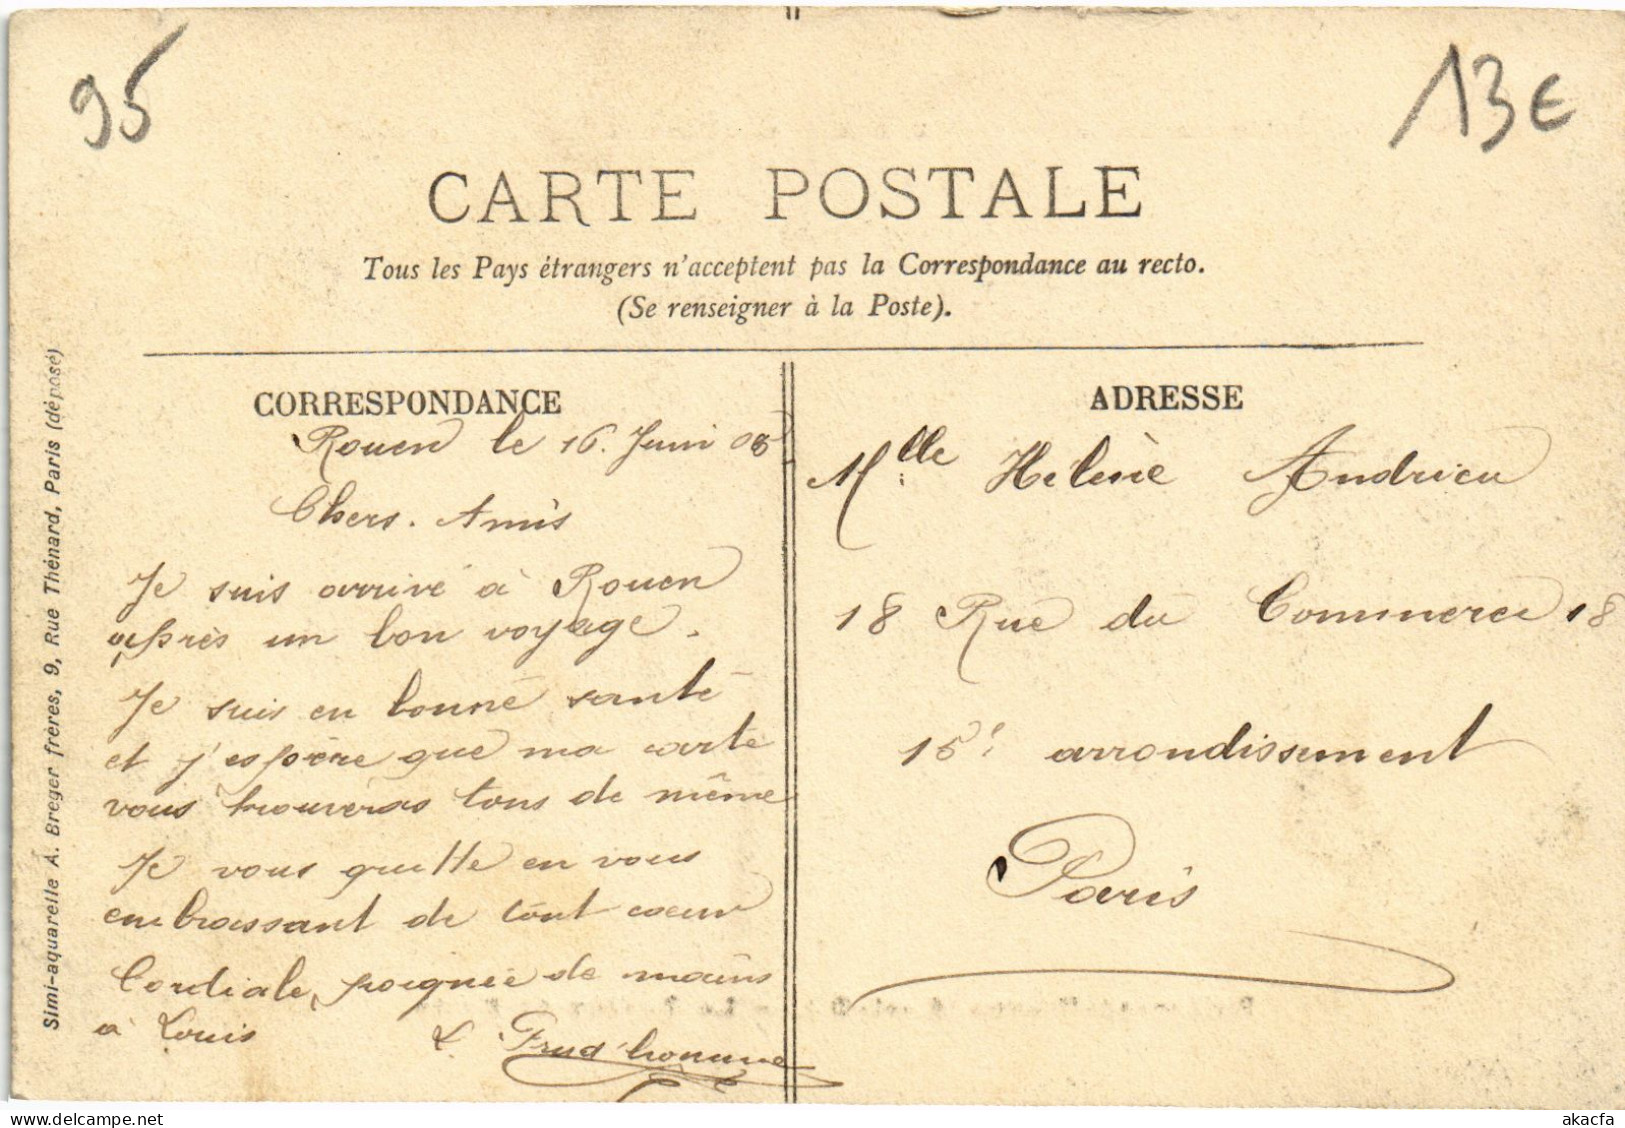 95
13€
CARTE POSTALE
Tous les Pays étrangers n'acceptent pas la Correspondance au recto.
(Se renseigner à la Poste).
CORRESPONDANCE
Rouen le 16. Juin 08
Chers. Amis
Je suis arrivé à Rouen
après un bon voyage.
Je suis en bonne santé
et j'espère que ma carte
vous trouveras tous de même
Je vous quitte en vous
embrassant de tout coeur
Cordiale poignée de mains
à Louis L. Prud'homme
ADRESSE
Mlle Helène Andrieu
18 Rue du Commerce 18
15e arrondissement
Paris
Simi-aquarelle A. Breger frères, 9, Rue Thénard, Paris (déposé)
akacfa